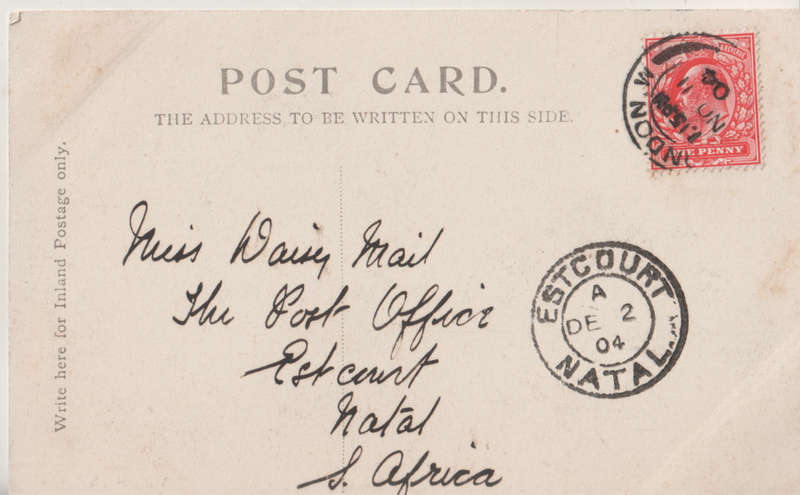 POST CARD.
THE ADDRESS TO BE WRITTEN ON THIS SIDE.
Write here for Inland Postage only.
ONE PENNY
NO 11
04
Miss Daisy Mail
The Post Office
Estcourt
Natal
S. Africa
ESTCOURT
A
DE 2
04
NATAL